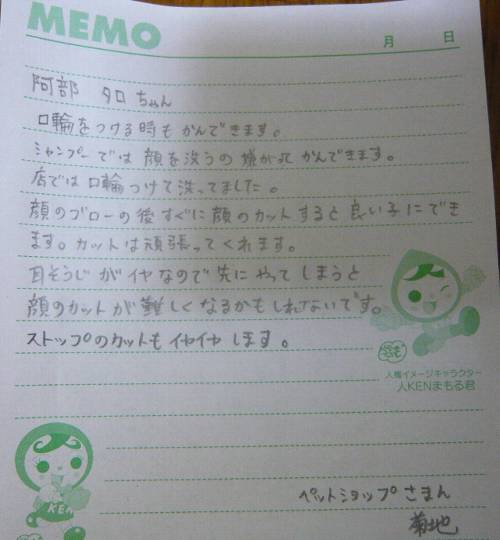 MEMO
月 日
阿部 タロちゃん
口輪をつける時もかんできます。
シャンプーでは顔を洗うの嫌がってかんできます。
店では口輪つけて洗ってました。
顔のブローの後すぐに顔のカットすると良い子にでき
ます。カットは頑張ってくれます。
耳そうじがイヤなので先にやってしまうと
顔のカットが難しくなるかもしれないです。
ストップのカットもイヤイヤします。
人権イメージキャラクター
人KENまもる君
KEN
ペットショップさまん
菊地